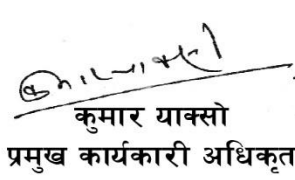 कुमार याक्सो
प्रमुख कार्यकारी अधिकृत